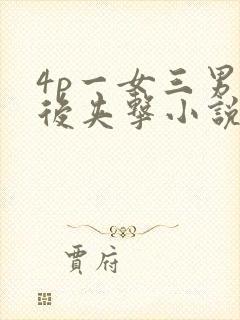 4p一女三男
後失擊小說
賈府